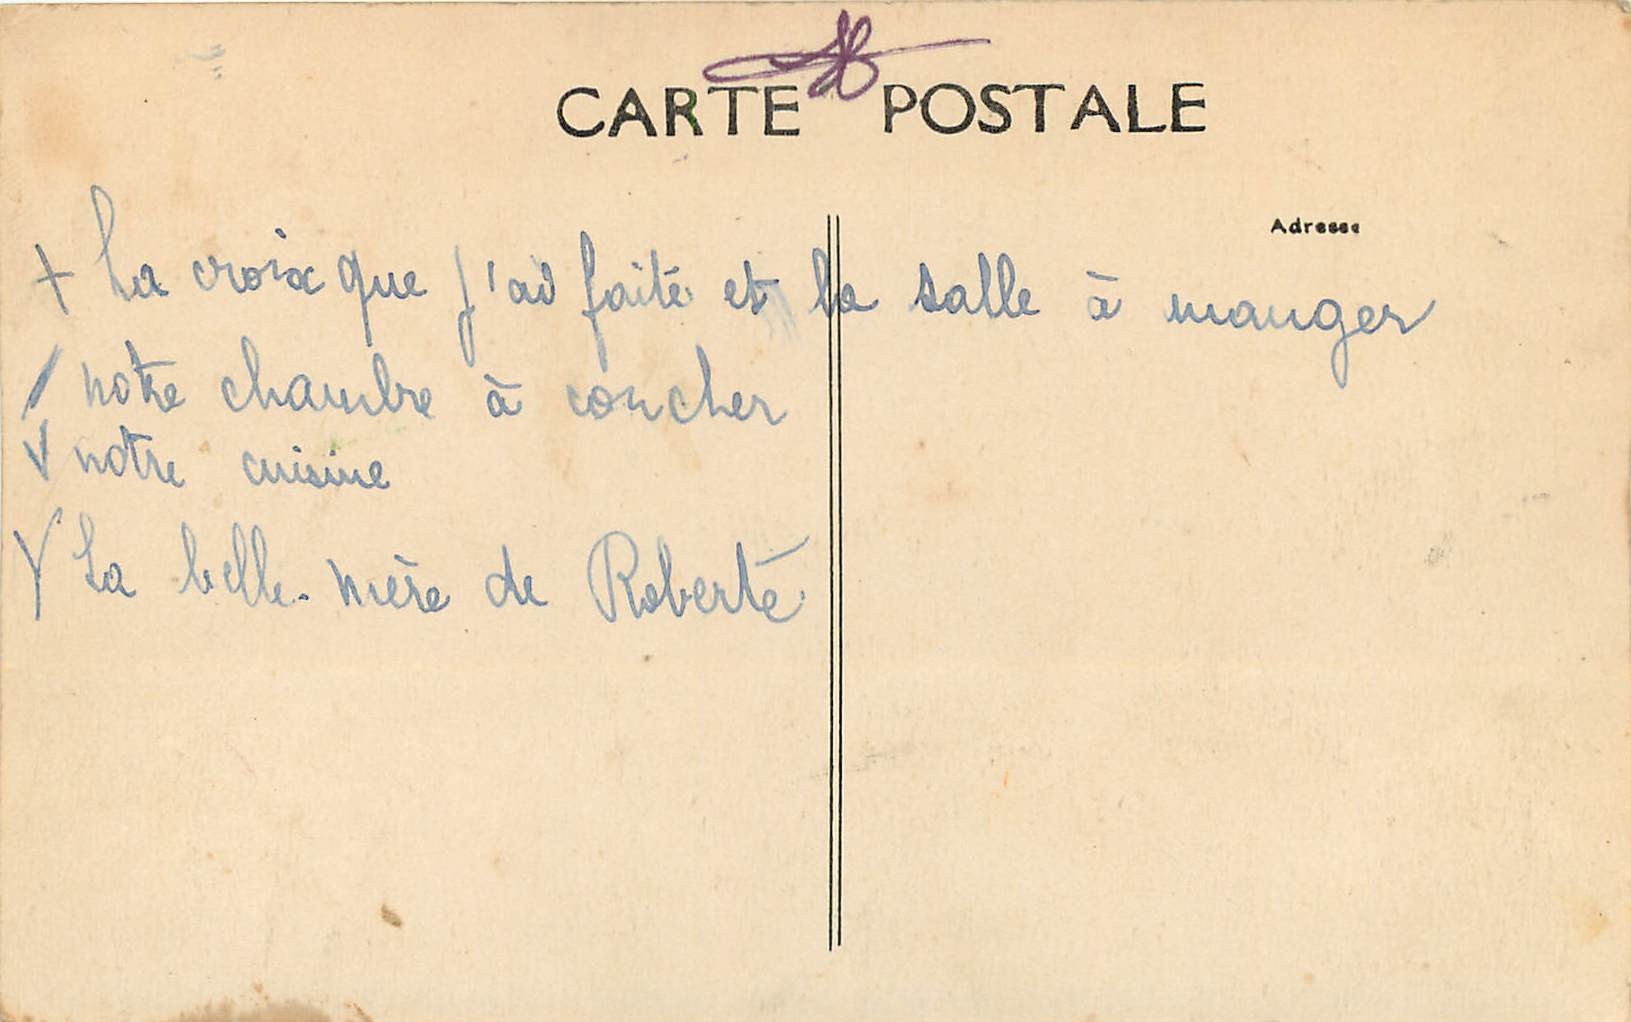 CARTE POSTALE
Adresse
+ La croix que j'ai faite et la salle à manger
/ notre chambre à coucher
V notre cuisine
Y La belle-mère de Roberte